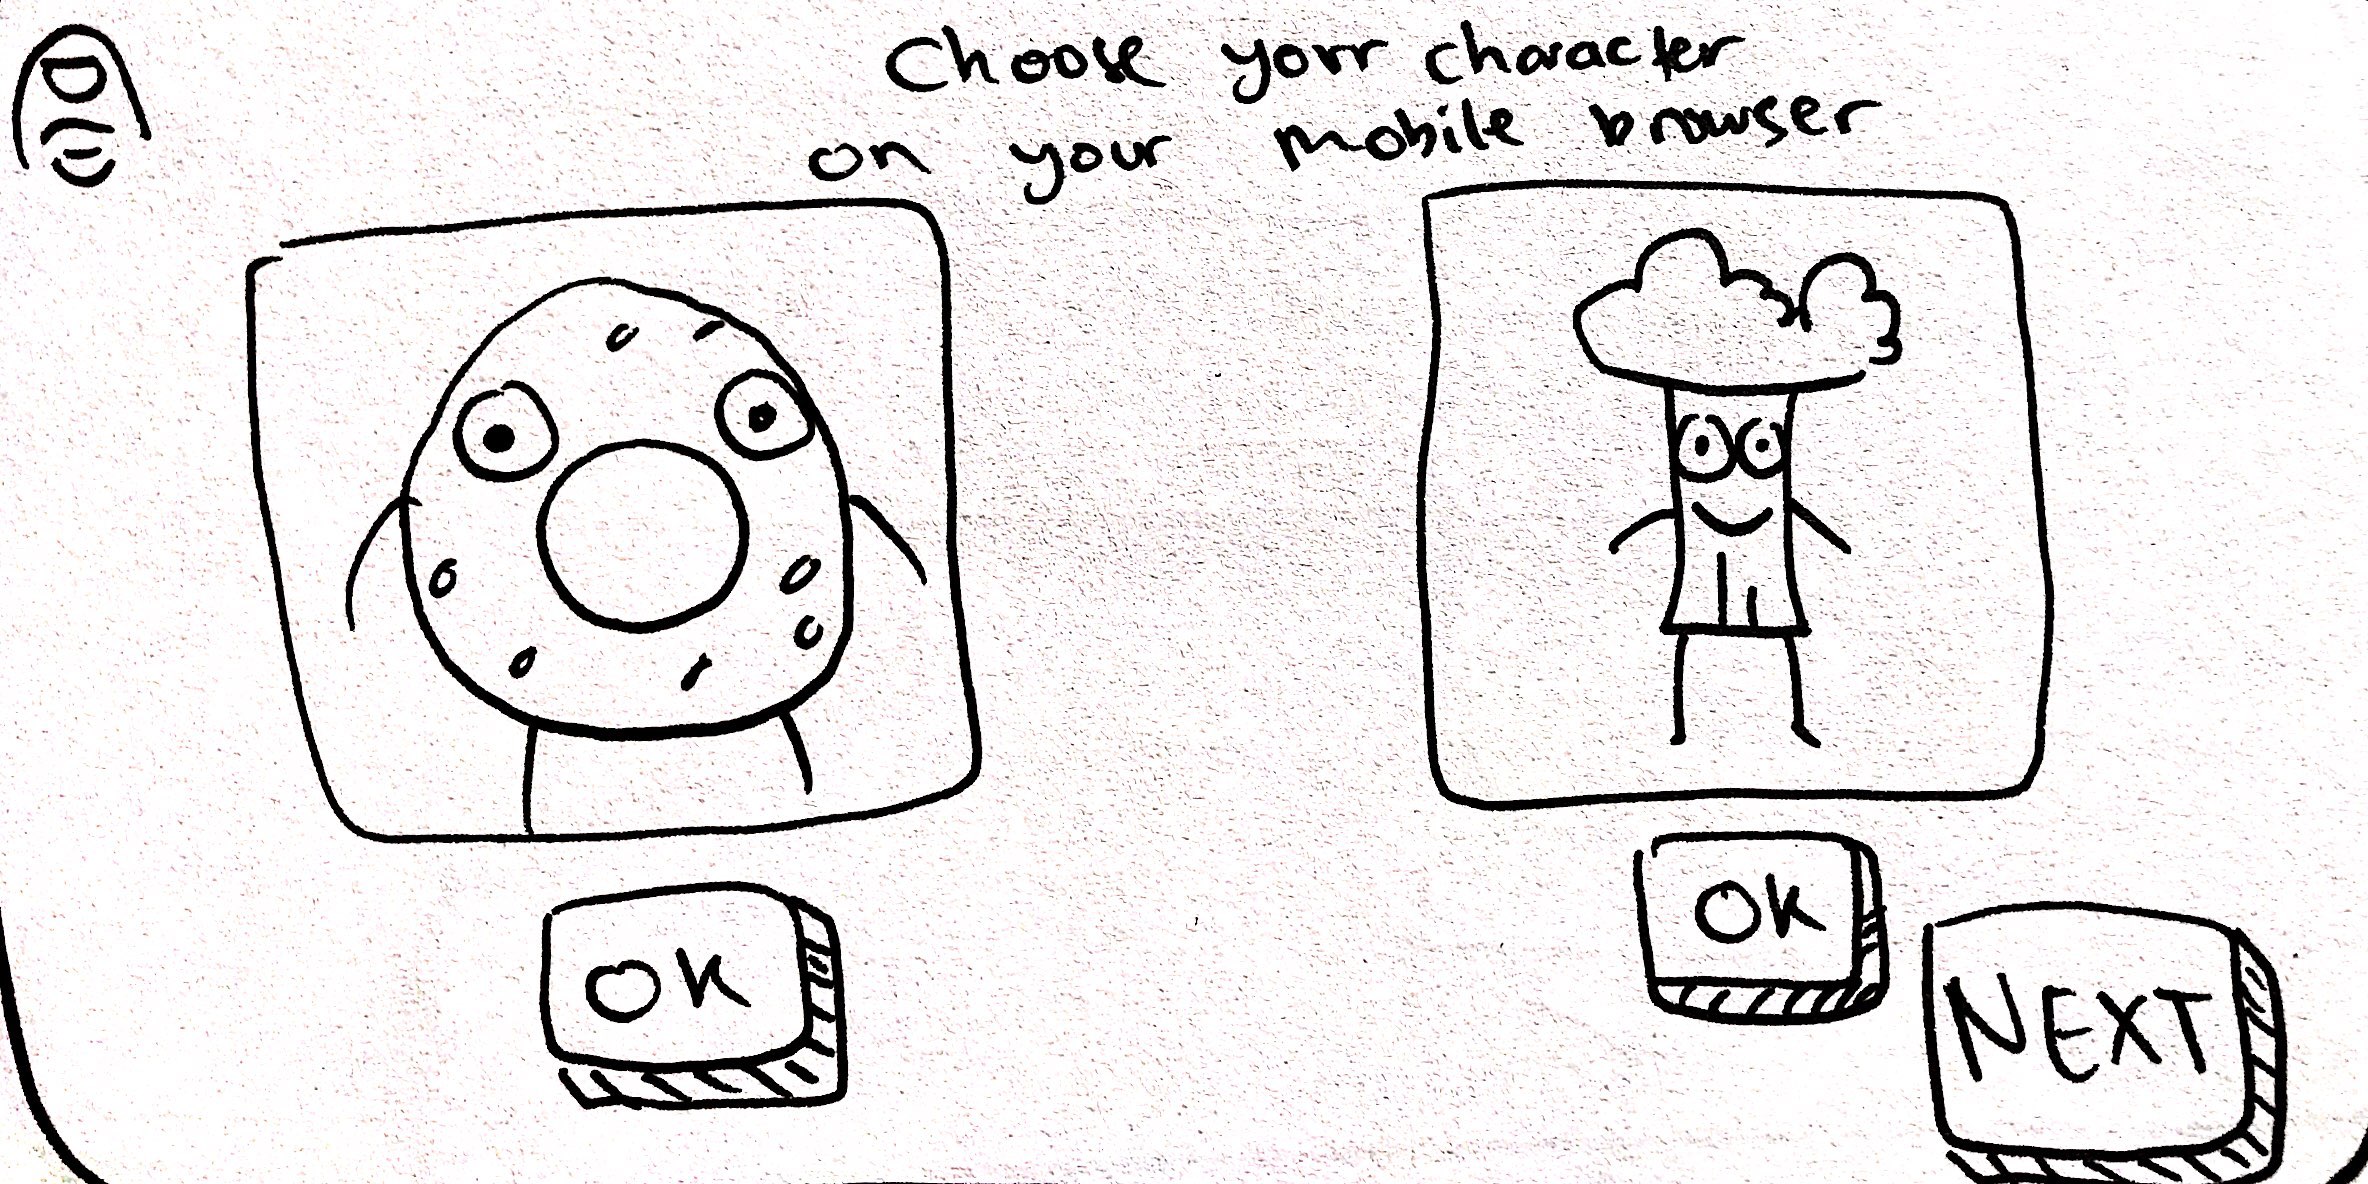 Choose yorr character
on your mobile browser
OK
OK
NEXT